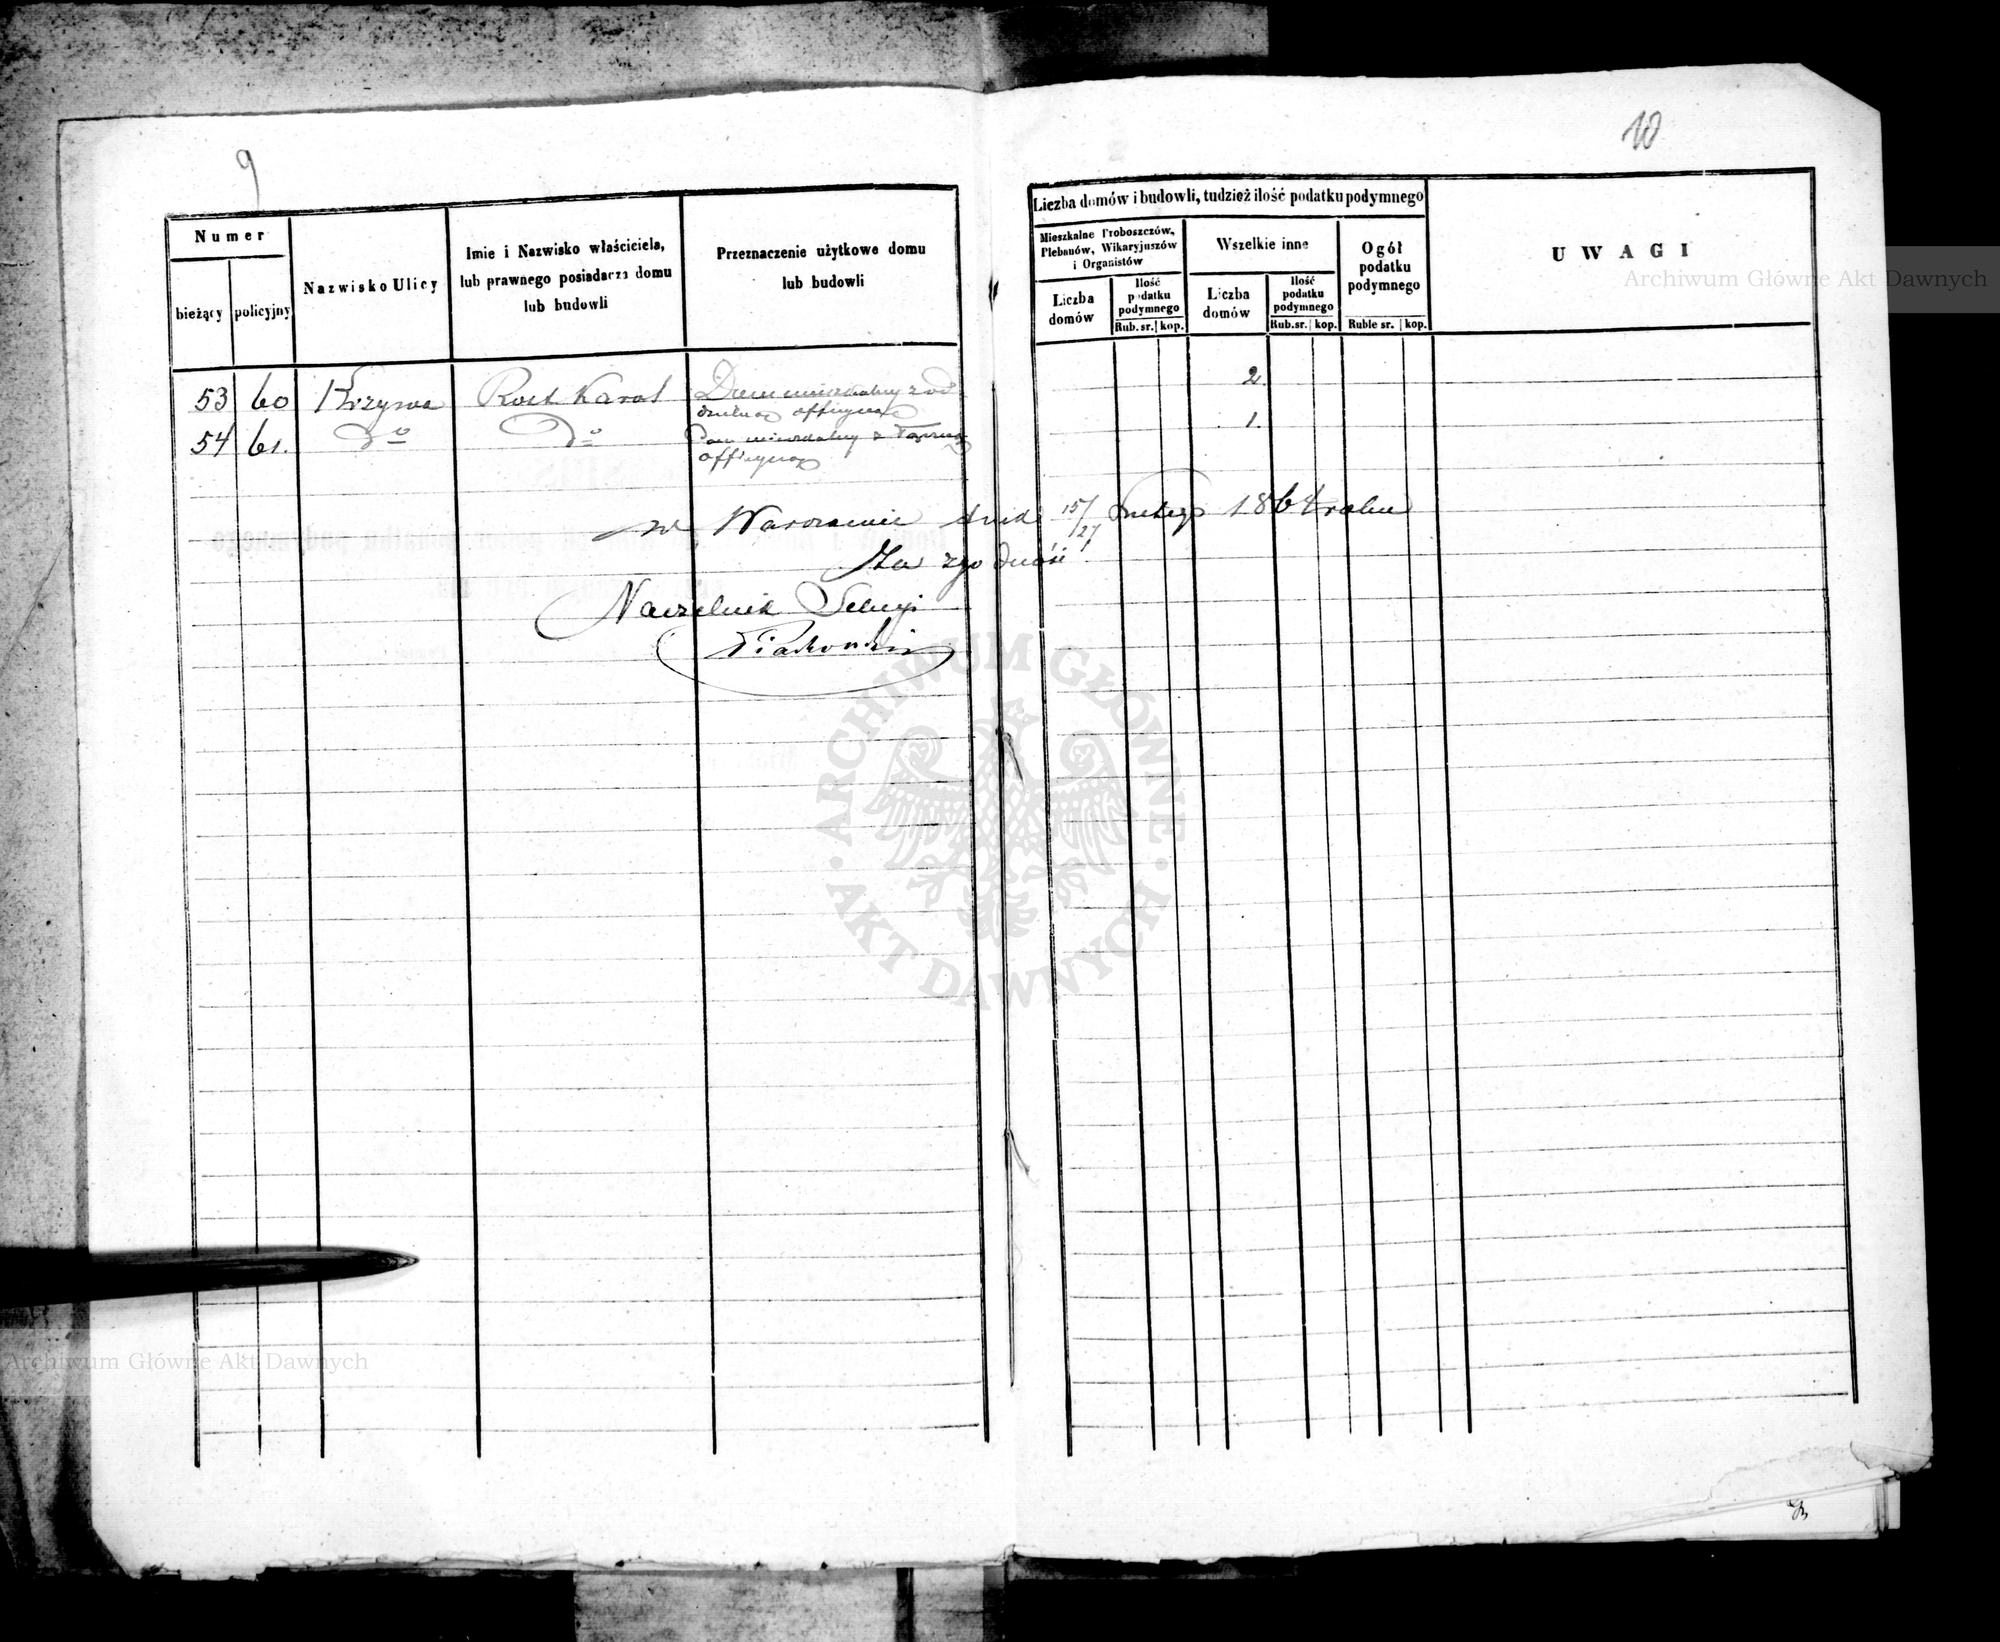 9
10
Numer
bieżący
policyjny
Nazwisko Ulicy
Imie i Nazwisko właściciela,
lub prawnego posiadacza domu
lub budowli
Przeznaczenie użytkowe domu
lub budowli
Liczba domów i budowli, tudzież ilość podatku podymnego
Mieszkalne Proboszczów,
Plebanów, Wikaryjuszów
i Organistów
Liczba
domów
Ilość
podatku
podymnego
Rub. sr. | kop.
Wszelkie inne
Liczba
domów
Ilość
podatku
podymnego
Rub. sr. | kop.
Ogół
podatku
podymnego
Ruble sr. | kop.
UWAGI
53 60 Krzywa Rost Karol Dom mieszkalny z od-
dzielną officyną 2.
54 61. do do Dom mieszkalny z
officyną 1.
w Warszawie dnia 15/27 Lutego 1864 roku
Za zgodność
Naczelnik Sekcyi
Archiwum Główne Akt Dawnych
ARCHIWUM GŁÓWNE
AKT DAWNYCH
Archiwum Główne Akt Dawnych